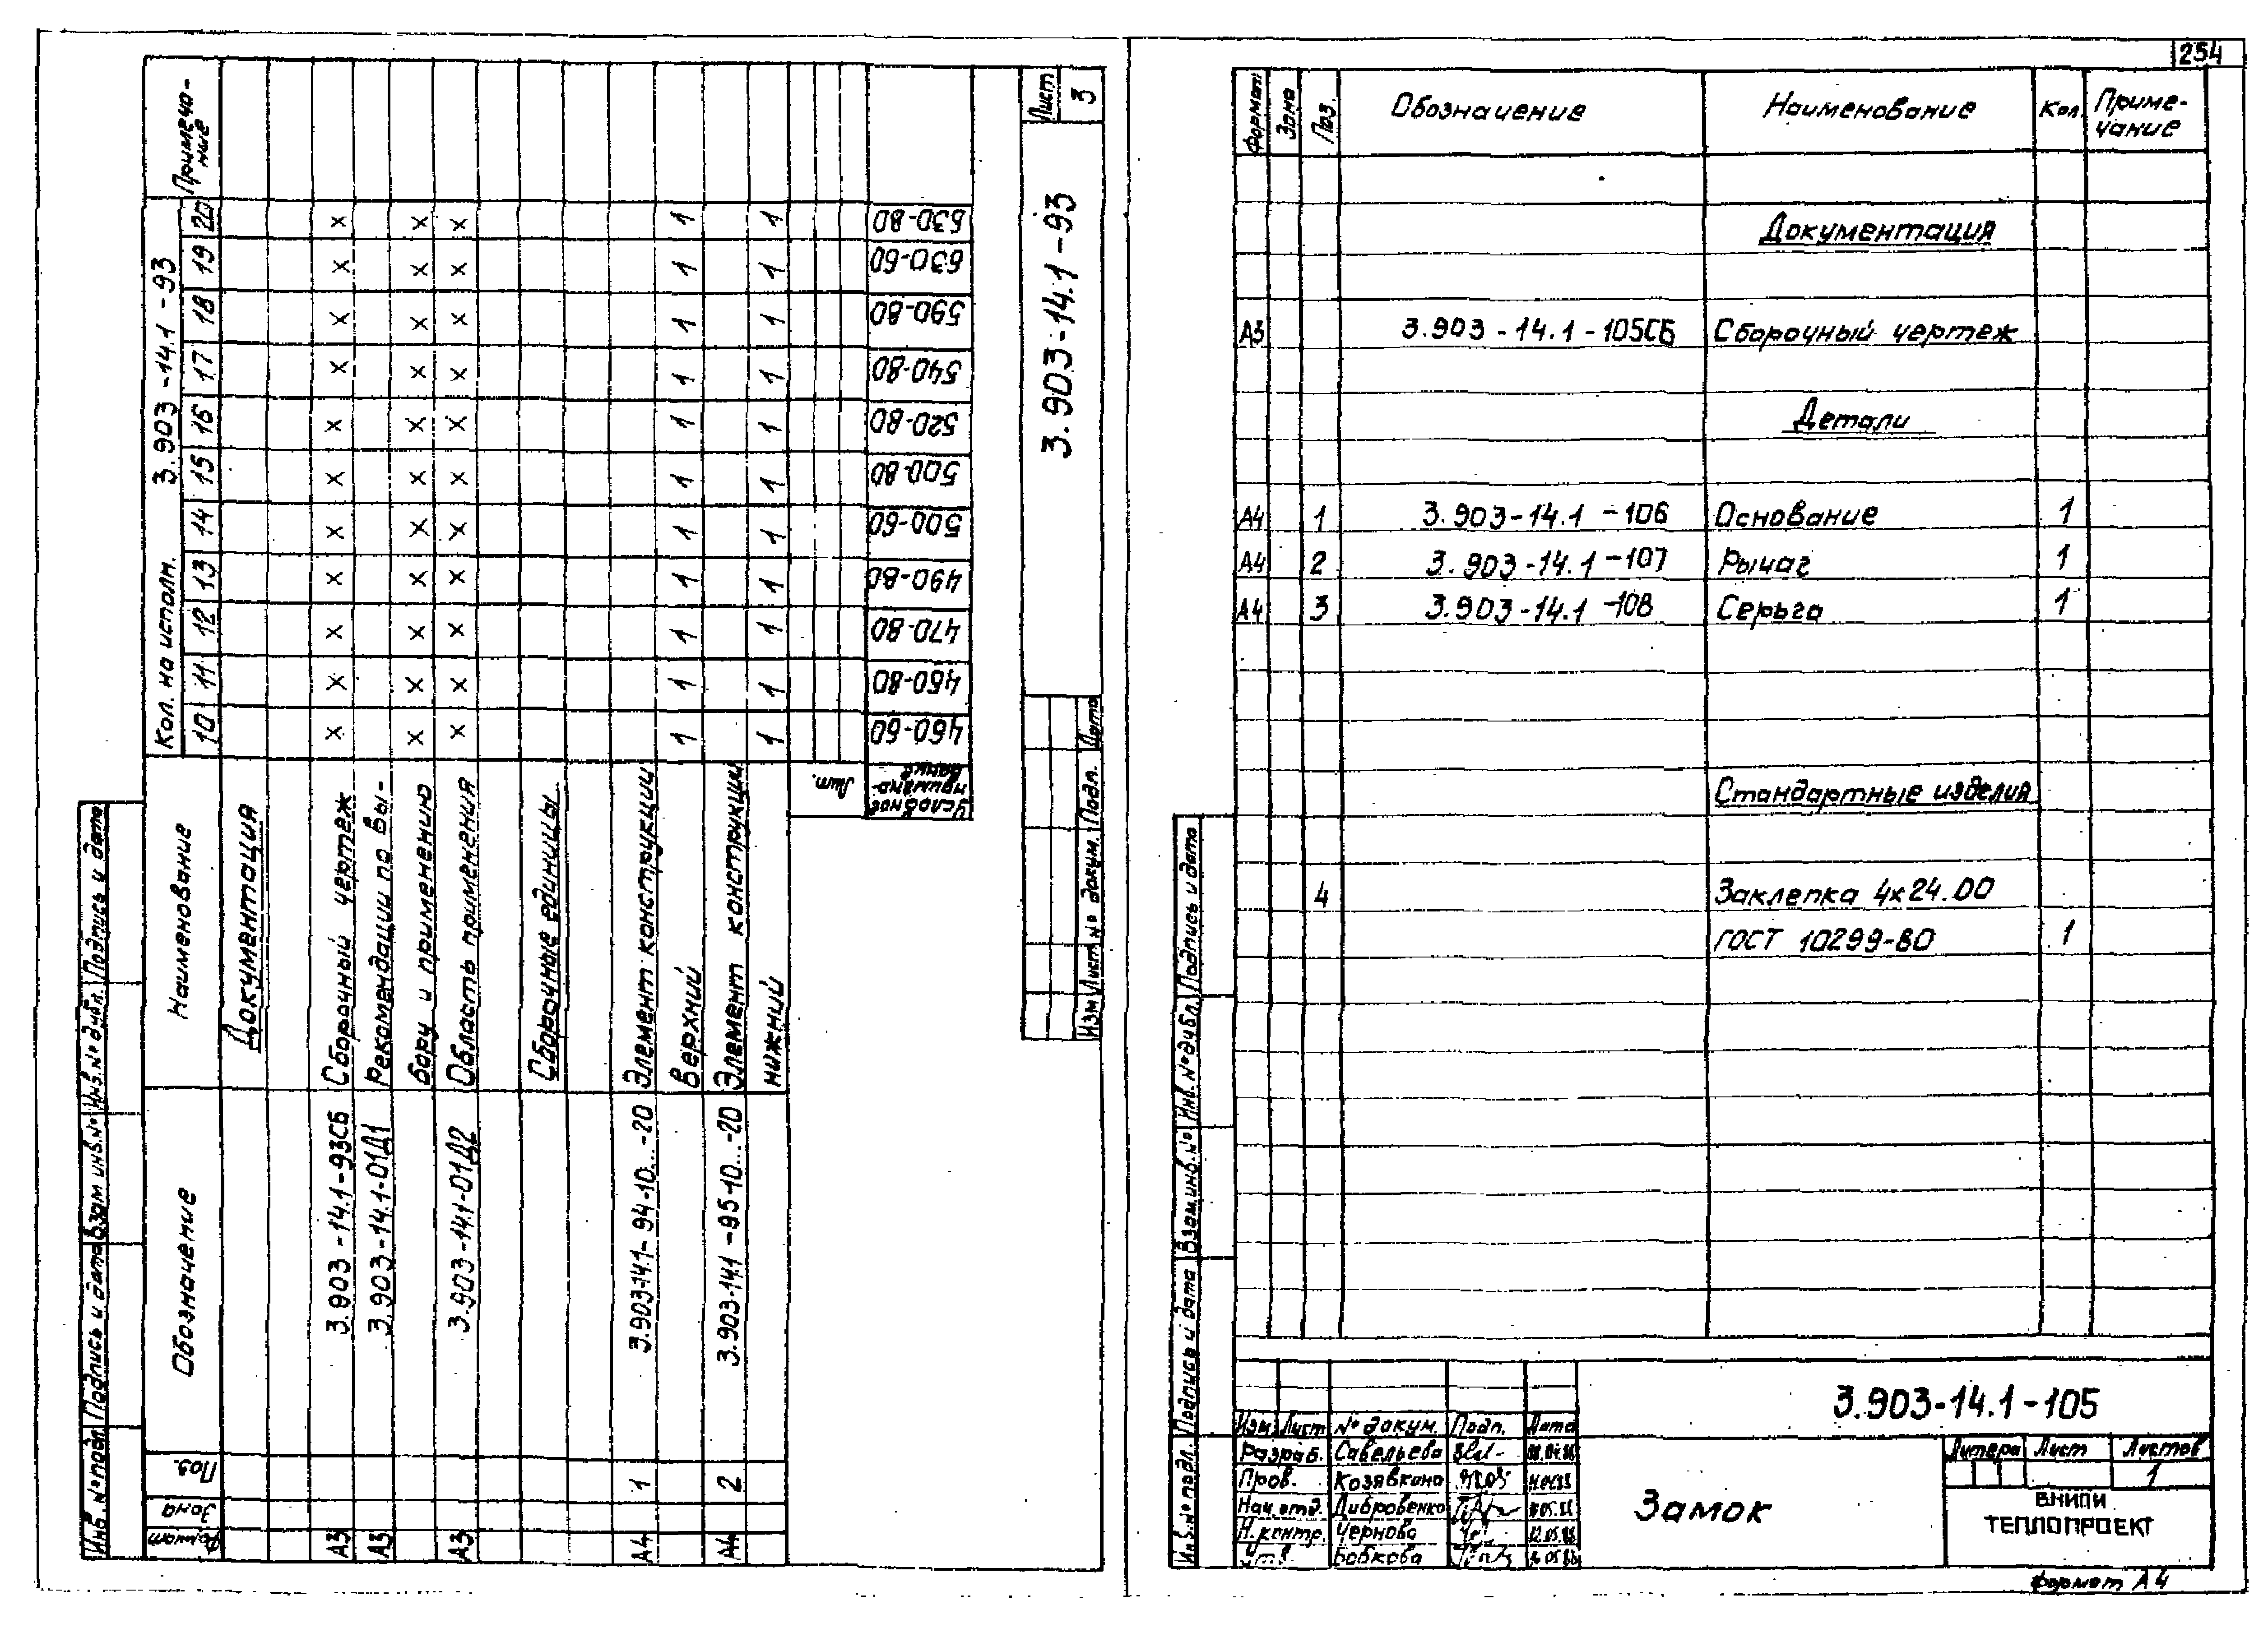 254
Кол. на исполн. 3.903-14.1-93
Формат Зона Поз. Обозначение Наименование 10 11 12 13 14 15 16 17 18 19 20 Примеча-
ние
Документация
А3 3.903-14.1-93СБ Сборочный чертеж × × × × × × × × × × ×
А3 3.903-14.1-01Д1 Рекомендации по вы-
бору и применению × × × × × × × × × × ×
А3 3.903-14.1-01Д2 Область применения × × × × × × × × × × ×
Сборочные единицы
А4 1 3.903-14.1-94-10...-20 Элемент конструкции
верхний 1 1 1 1 1 1 1 1 1 1 1
А4 2 3.903-14.1-95-10...-20 Элемент конструкции
нижний 1 1 1 1 1 1 1 1 1 1 1
Лит.
Условное
примена-
460-60 460-80 470-80 490-80 500-60 500-80 520-80 540-80 590-80 630-60 630-80
3.903-14.1-93
Лист
3
Изм Лист № докум. Подп. Дата
Инв.№ подл. Подпись и дата Взам инв.№ Инв.№ дубл. Подпись и дата
Формат Зона Поз. Обозначение Наименование Кол. Приме-
чание
Документация
А3 3.903-14.1-105СБ Сборочный чертеж
Детали
А4 1 3.903-14.1-106 Основание 1
А4 2 3.903-14.1-107 Рычаг 1
А4 3 3.903-14.1-108 Серьга 1
Стандартные изделия
4 Заклепка 4х24.00
ГОСТ 10299-80 1
Инв.№ подл. Подпись и дата Взам.инв.№ Инв.№ дубл. Подпись и дата
3.903-14.1-105
Изм Лист № докум. Подп. Дата
Разраб. Савельева
Пров. Козявкина
Нач.отд. Дибровенко
Н.контр. Чернова 12.05.88
Утв. Бобкова
Замок
Литера Лист Листов
1
ВНИПИ
ТЕПЛОПРОЕКТ
Формат А4